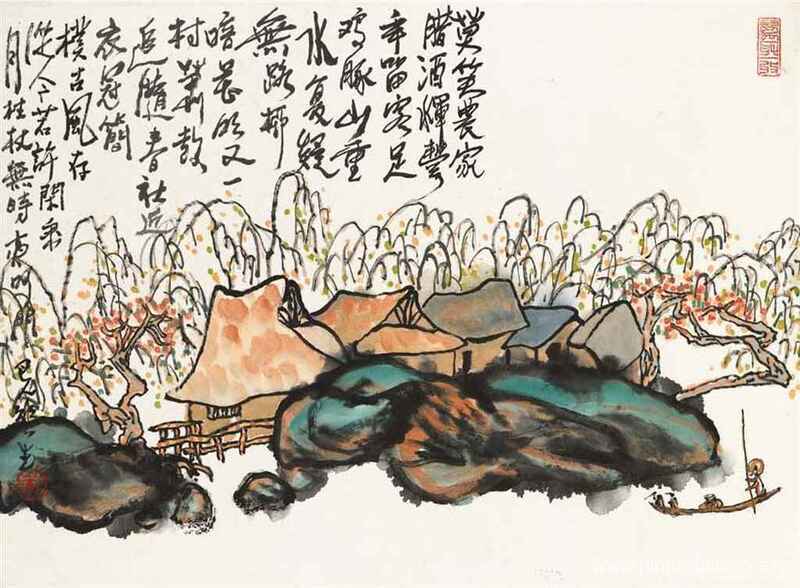 莫笑農家
臘酒渾豐
年留客足
鸡豚山重
水复疑
無路柳
暗花明又一
村簫鼓
追隨春社近
衣冠簡
樸古風存
從今若許閑乘
月拄杖無時夜叩門